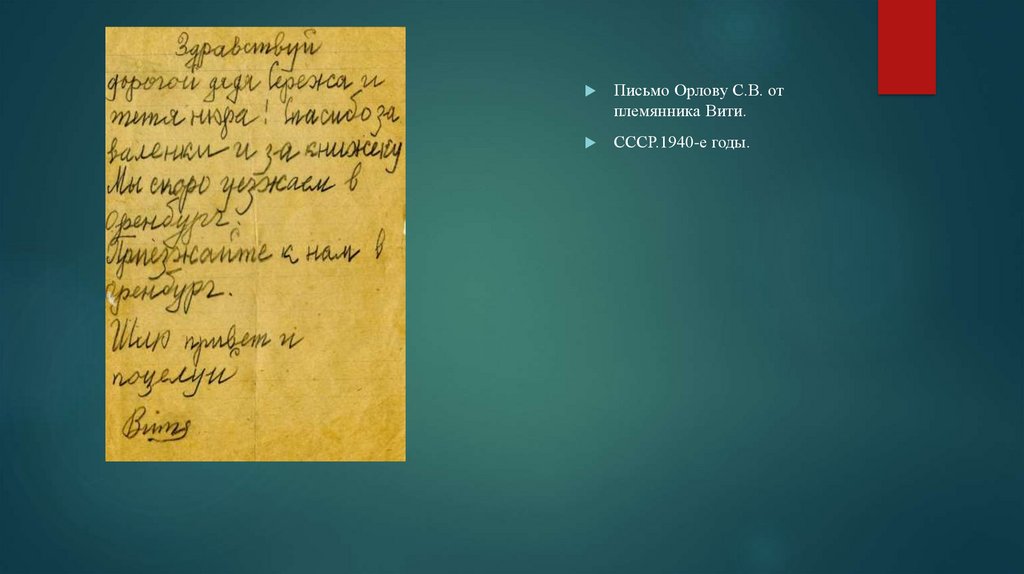 Здравствуй
дорогой дядя Сережа и
тетя нюра! Спасибо за
валенки и за книжечку
Мы скоро уезжаем в
оренбург.
Приезжайте к нам в
оренбург.
Шлю привет и
поцелуй
Витя
Письмо Орлову С.В. от
племянника Вити.
СССР.1940-е годы.